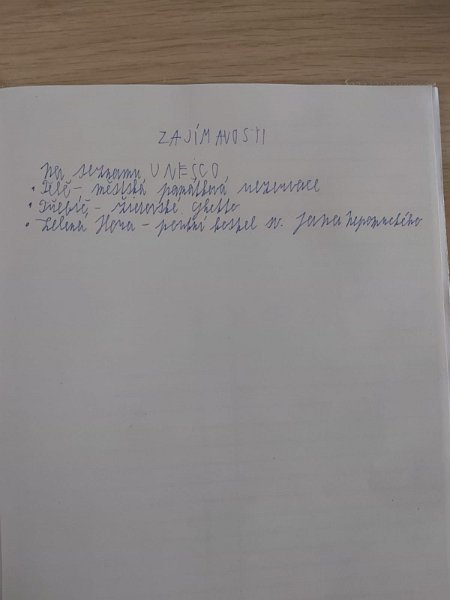 ZAJÍMAVOSTI
na seznamu UNESCO
• Telč - městská památková rezervace
• Třebíč, - židovské ghetto
• Zelená Hora - poutní kostel sv. Jana Nepomuckého